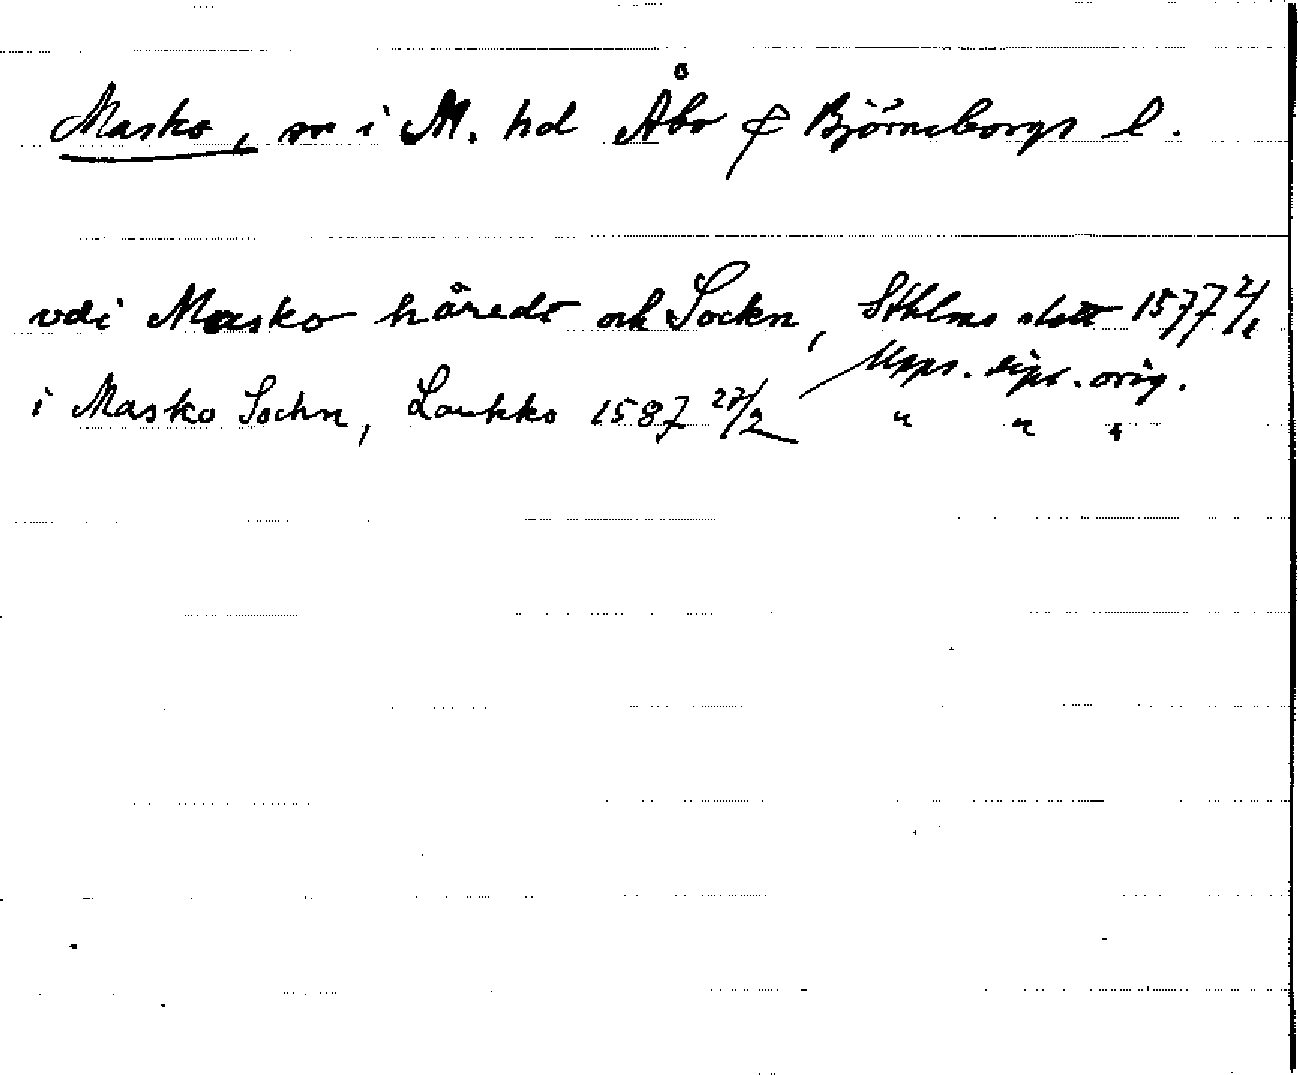 Masko, sn i M. hd Åbo & Björneborgs l.
vdi Masko häredt och Sockn, Sthlms slott 1577 2/1
Upps. dipl. orig.
i Masko Sochn, Laukko 1587 27/2 " " "